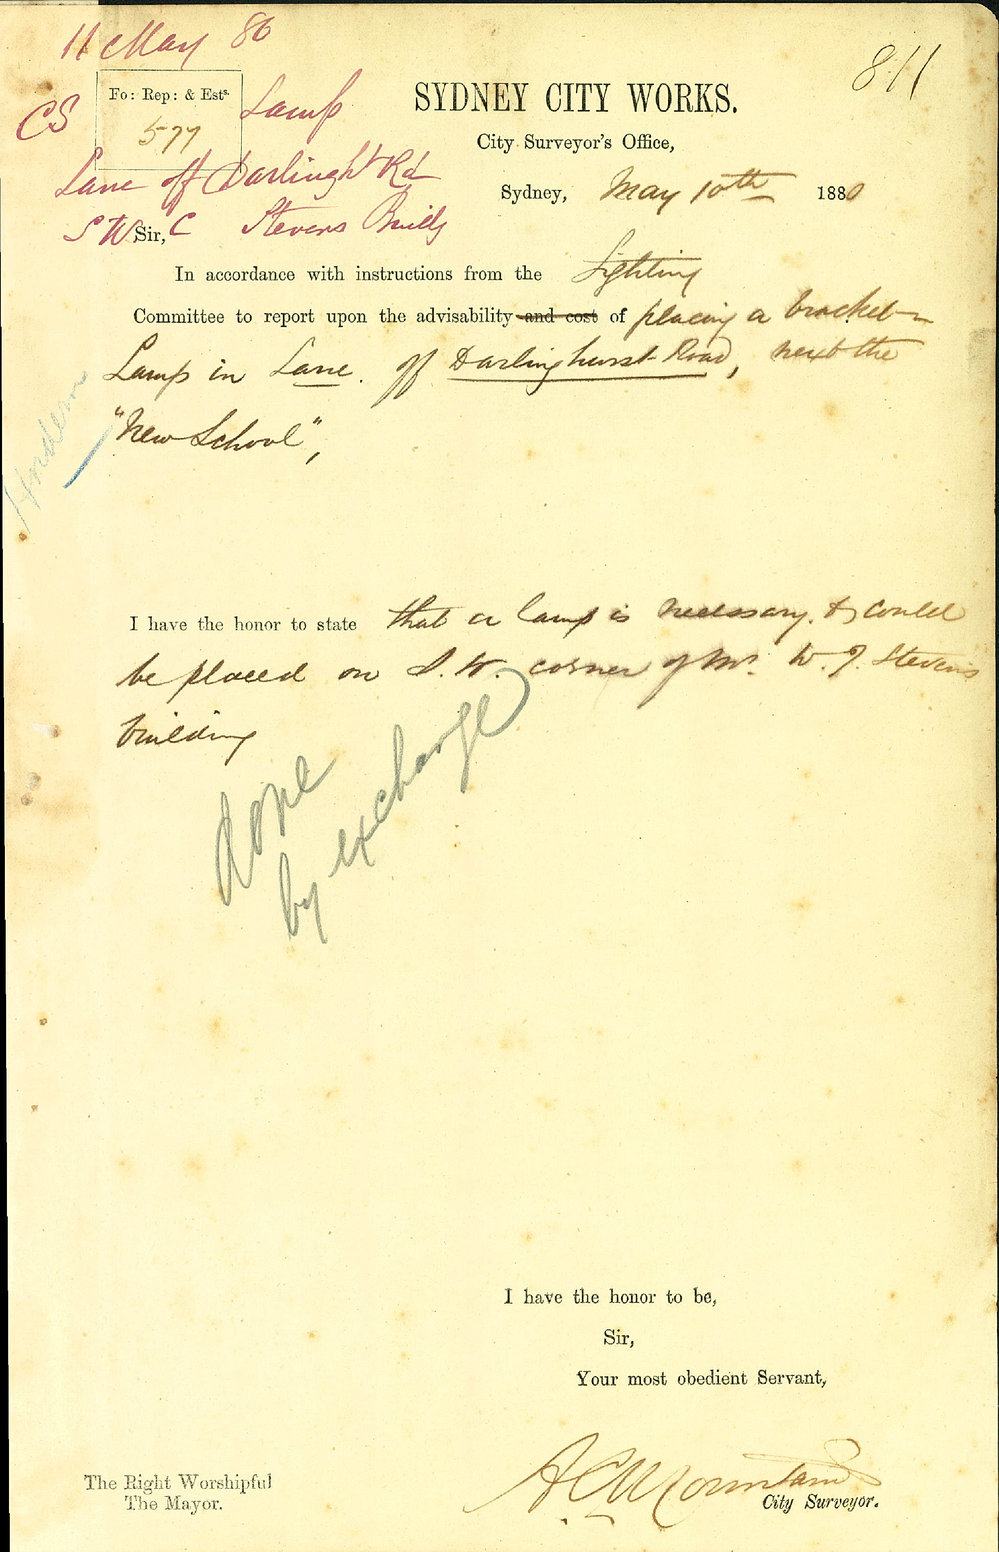 11 May 80
811
CS
Fo: Rep: & Ests.
577
Lamp
SYDNEY CITY WORKS.
City Surveyor's Office,
Lane off Darlinght Rd
Sydney, May 10th 1880
S W C Stevens Builg
Sir,
In accordance with instructions from the Lighting
Committee to report upon the advisability and cost of placing a bracket
Lamp in Lane off Darlinghurst Road, next the
"New School",
Hordern
I have the honor to state that a lamp is necessary & could
be placed on S.W. corner of Mr. W. J. Stevens
building
done
by exchange
I have the honor to be,
Sir,
Your most obedient Servant,
A C Mountain
City Surveyor.
The Right Worshipful
The Mayor.